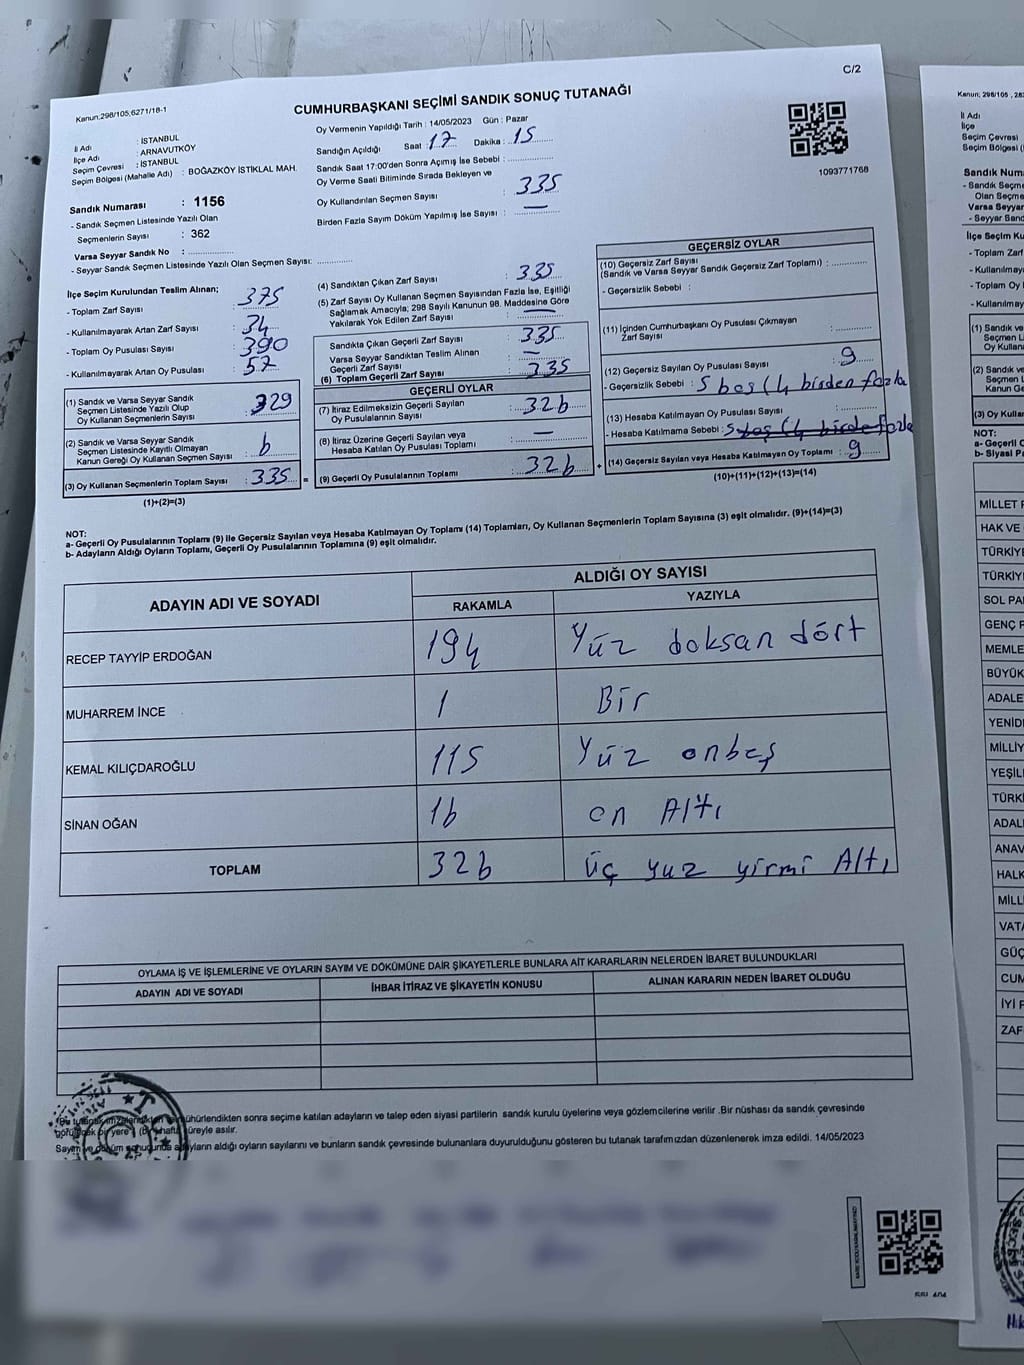 C/2
Kanun;298/105;6271/18-1
CUMHURBAŞKANI SEÇİMİ SANDIK SONUÇ TUTANAĞI
İl Adı : İSTANBUL
İlçe Adı : ARNAVUTKÖY
Seçim Çevresi : İSTANBUL
Seçim Bölgesi (Mahalle Adı) : BOĞAZKÖY İSTİKLAL MAH.
Sandık Numarası : 1156
- Sandık Seçmen Listesinde Yazılı Olan
Seçmenlerin Sayısı : 362
Varsa Seyyar Sandık No : ..............
- Seyyar Sandık Seçmen Listesinde Yazılı Olan Seçmen Sayısı: ..............
Oy Vermenin Yapıldığı Tarih : 14/05/2023 Gün : Pazar
Sandığın Açıldığı Saat : 17 Dakika : 15
Sandık Saat 17:00'den Sonra Açımış İse Sebebi : ..............
Oy Verme Saati Bitiminde Sırada Bekleyen ve
Oy Kullandırılan Seçmen Sayısı : 335
Birden Fazla Sayım Döküm Yapılmış İse Sayısı : —
1093771768
İlçe Seçim Kurulundan Teslim Alınan;
- Toplam Zarf Sayısı : 375
- Kullanılmayarak Artan Zarf Sayısı : 34
- Toplam Oy Pusulası Sayısı : 390
- Kullanılmayarak Artan Oy Pusulası : 57
(1) Sandık ve Varsa Seyyar Sandık
Seçmen Listesinde Yazılı Olup
Oy Kullanan Seçmenlerin Sayısı : 329
(2) Sandık ve Varsa Seyyar Sandık
Seçmen Listesinde Kayıtlı Olmayan
Kanun Gereği Oy Kullanan Seçmen Sayısı : 6
(3) Oy Kullanan Seçmenlerin Toplam Sayısı : 335
(1)+(2)=(3)
(4) Sandıktan Çıkan Zarf Sayısı : 335
(5) Zarf Sayısı Oy Kullanan Seçmen Sayısından Fazla İse, Eşitliği
Sağlamak Amacıyla; 298 Sayılı Kanunun 98. Maddesine Göre
Yakılarak Yok Edilen Zarf Sayısı : —
Sandıkta Çıkan Geçerli Zarf Sayısı : 335
Varsa Seyyar Sandıktan Teslim Alınan
Geçerli Zarf Sayısı : —
(6) Toplam Geçerli Zarf Sayısı : 335
GEÇERLİ OYLAR
(7) İtiraz Edilmeksizin Geçerli Sayılan
Oy Pusulalarının Sayısı : 326
(8) İtiraz Üzerine Geçerli Sayılan veya
Hesaba Katılan Oy Pusulası Toplamı : —
(9) Geçerli Oy Pusulalarının Toplamı : 326
GEÇERSİZ OYLAR
(10) Geçersiz Zarf Sayısı
(Sandık ve Varsa Seyyar Sandık Geçersiz Zarf Toplamı) : ..............
- Geçersizlik Sebebi :
(11) İçinden Cumhurbaşkanı Oy Pusulası Çıkmayan
Zarf Sayısı : ..............
(12) Geçersiz Sayılan Oy Pusulası Sayısı : 9
- Geçersizlik Sebebi : 5 boş (4 birden fazla
(13) Hesaba Katılmayan Oy Pusulası Sayısı : ..............
- Hesaba Katılmama Sebebi : 5 boş (4 birde fazla
(14) Geçersiz Sayılan veya Hesaba Katılmayan Oy Toplamı : 9
(10)+(11)+(12)+(13)=(14)
NOT:
a- Geçerli Oy Pusulalarının Toplamı (9) ile Geçersiz Sayılan veya Hesaba Katılmayan Oy Toplamı (14) Toplamları, Oy Kullanan Seçmenlerin Toplam Sayısına (3) eşit olmalıdır. (9)+(14)=(3)
b- Adayların Aldığı Oyların Toplamı, Geçerli Oy Pusulalarının Toplamına (9) eşit olmalıdır.
ADAYIN ADI VE SOYADI ALDIĞI OY SAYISI
RAKAMLA YAZIYLA
RECEP TAYYİP ERDOĞAN 194 Yüz doksan dört
MUHARREM İNCE 1 Bir
KEMAL KILIÇDAROĞLU 115 Yüz onbeş
SİNAN OĞAN 16 on Altı
TOPLAM 326 Üç yuz yirmi Altı
OYLAMA İŞ VE İŞLEMLERİNE VE OYLARIN SAYIM VE DÖKÜMÜNE DAİR ŞİKAYETLERLE BUNLARA AİT KARARLARIN NELERDEN İBARET BULUNDUKLARI
ADAYIN ADI VE SOYADI İHBAR İTİRAZ VE ŞİKAYETİN KONUSU ALINAN KARARIN NEDEN İBARET OLDUĞU
sonra seçime katılan adayların ve talep eden siyasi partilerin sandık kurulu üyelerine veya gözlemcilerine verilir .Bir nüshası da sandık çevresinde
süreyle asılır.
Sayım ve döküm sonucunda adayların aldığı oyların sayılarını ve bunların sandık çevresinde bulunanlara duyurulduğunu gösteren bu tutanak tarafımızdan düzenlenerek imza edildi. 14/05/2023
Kanun; 298/105
İl Adı
İlçe
Seçim Çevresi
Seçim Bölgesi
Sandık Num
- Sandık Seçm
Olan Seçme
Varsa Seyyar
- Seyyar Sand
İlçe Seçim Ku
- Toplam Zarf
- Kullanılmaya
- Toplam Oy
- Kullanılmay
(1) Sandık ve
Seçmen L
Oy Kullan
(2) Sandık ve
Seçmen L
Kanun Ge
(3) Oy Kullan
NOT:
a- Geçerli O
b- Siyasi Pa
MİLLET
HAK VE
TÜRKİYE
TÜRKİY
SOL PA
GENÇ P
MEMLE
BÜYÜK
ADALE
YENİD
MİLLİY
YEŞİL
TÜRK
ADAL
ANAV
HALK
MİLL
VATA
GÜÇ
CUM
İYİ P
ZAF